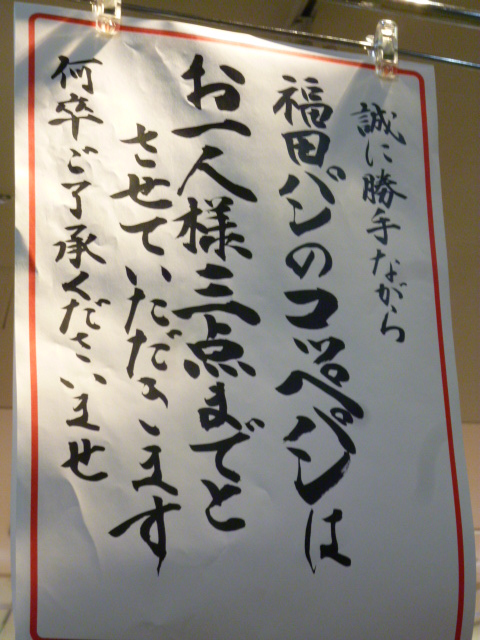 誠に勝手ながら
福田パンのコッペパンは
お一人様三点までと
させていただきます
何卒ご了承くださいませ